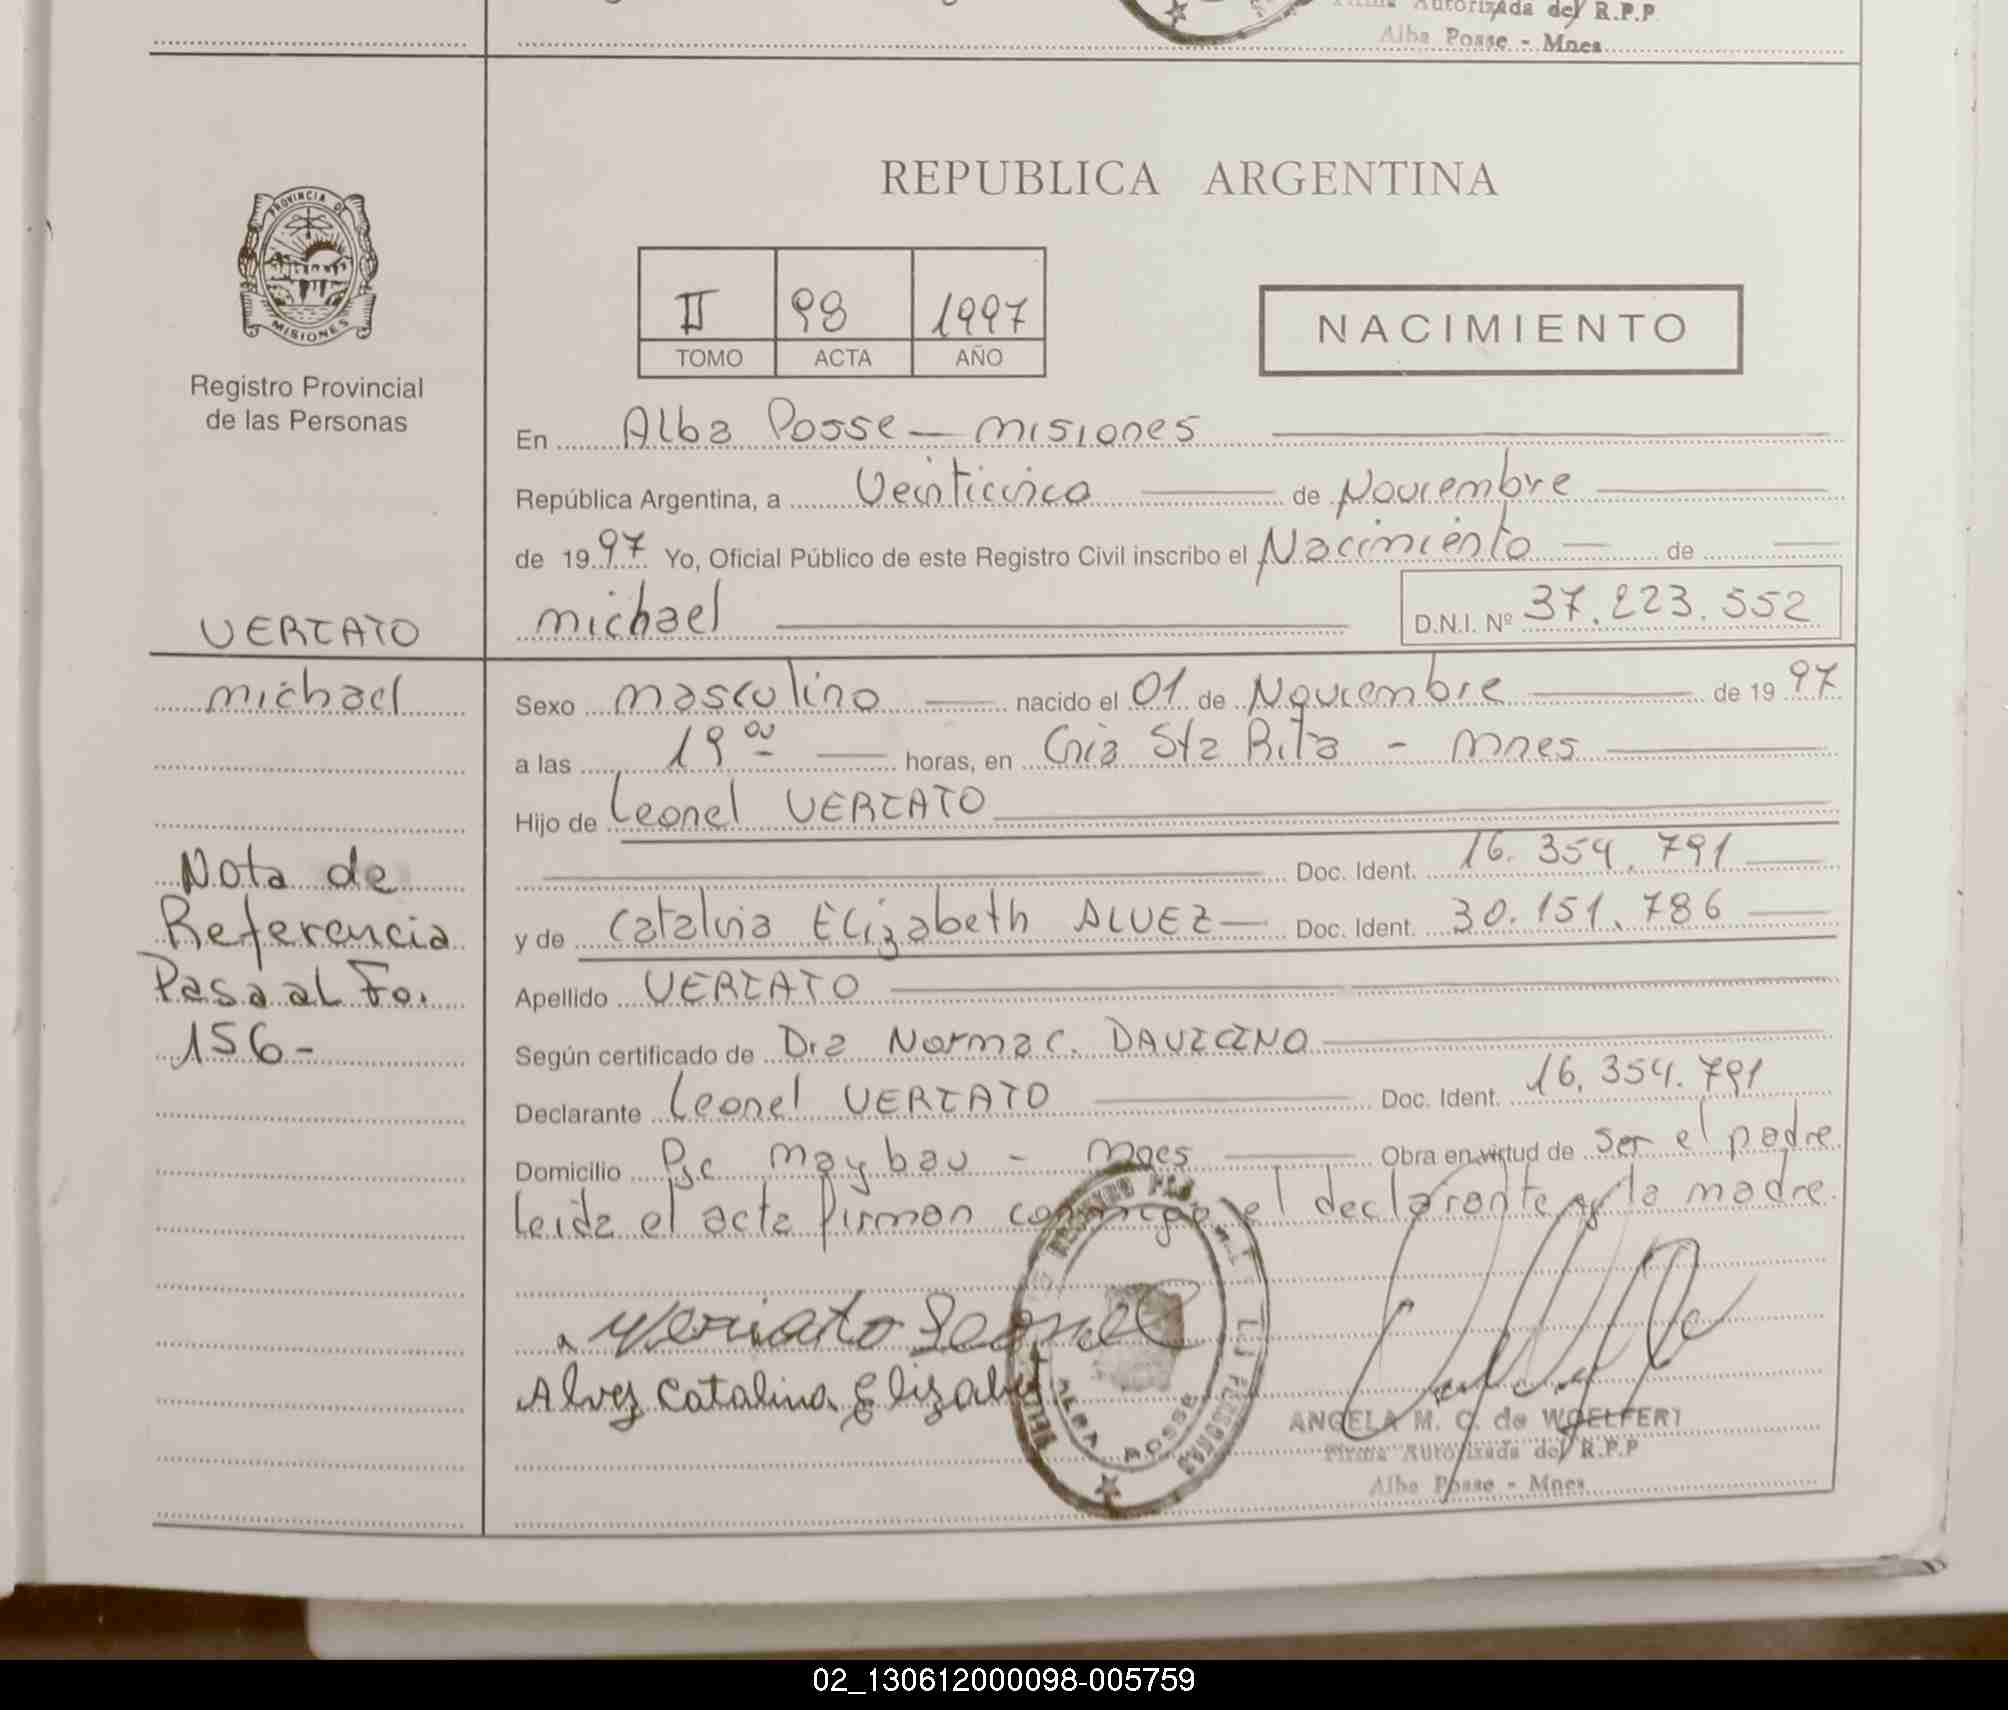 Firma Autorizada del R.P.P.
Alba Posse - Mnes
PROVINCIA DE
MISIONES
Registro Provincial
de las Personas
REPUBLICA ARGENTINA
II 98 1997
TOMO ACTA AÑO
NACIMIENTO
En Alba Posse - misiones
República Argentina, a Veinticinco de Noviembre
de 1997 Yo, Oficial Público de este Registro Civil inscribo el Nacimiento de
VERIATO
michael D.N.I. Nº 37.223.552
michael
Sexo masculino nacido el 01 de Noviembre de 1997
a las 19 00 horas, en Cnia Sta Rita - Mnes
Hijo de Leonel VERIATO
Doc. Ident. 16.354.791
y de Catalina Elizabeth ALVEZ Doc. Ident. 30.151.786
Apellido VERIATO
Según certificado de Dra Norma C. DAVICINO
Declarante Leonel VERIATO Doc. Ident. 16.354.791
Domicilio Pje Maybau - Mnes Obra en virtud de ser el padre
Leida el acta firman conmigo el declarante y la madre.
Nota de
Referencia
Pasa al Fo.
156-
Veriato Leonel
Alvez Catalina Elizabet
ALBA POSSE
ANGELA M. C. de WOELFERT
Firma Autorizada del R.P.P
Alba Posse - Mnes
02_130612000098-005759